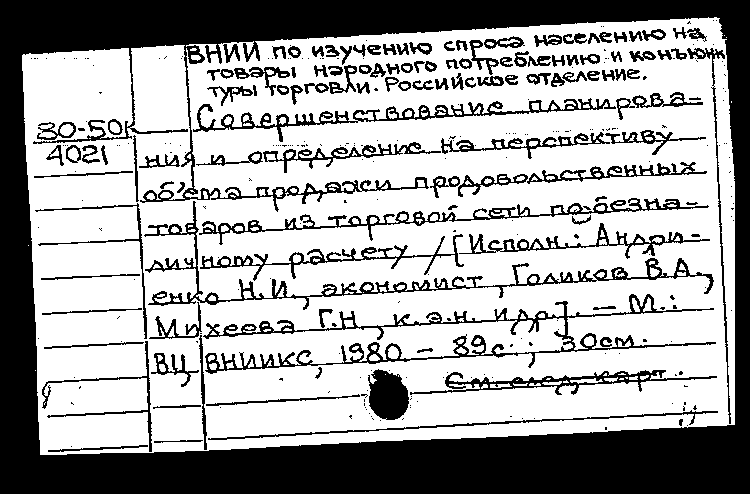 ВНИИ по изучению спроса населению на
товары народного потреблению и конъюнк
туры торговли. Российское отделение.
80-50К
4021
Совершенствование планирова-
ния и определение на перспективу
объема продажи продовольственных
товаров из торговой сети по безна-
личному расчету / [Исполн.: Андри-
енко Н.И., экономист, Голиков В.А.,
Михеева Г.Н., к.э.н. и др.]. — М.:
ВЦ ВНИИКС, 1980 - 89с.; 30см.
См. след. карт.